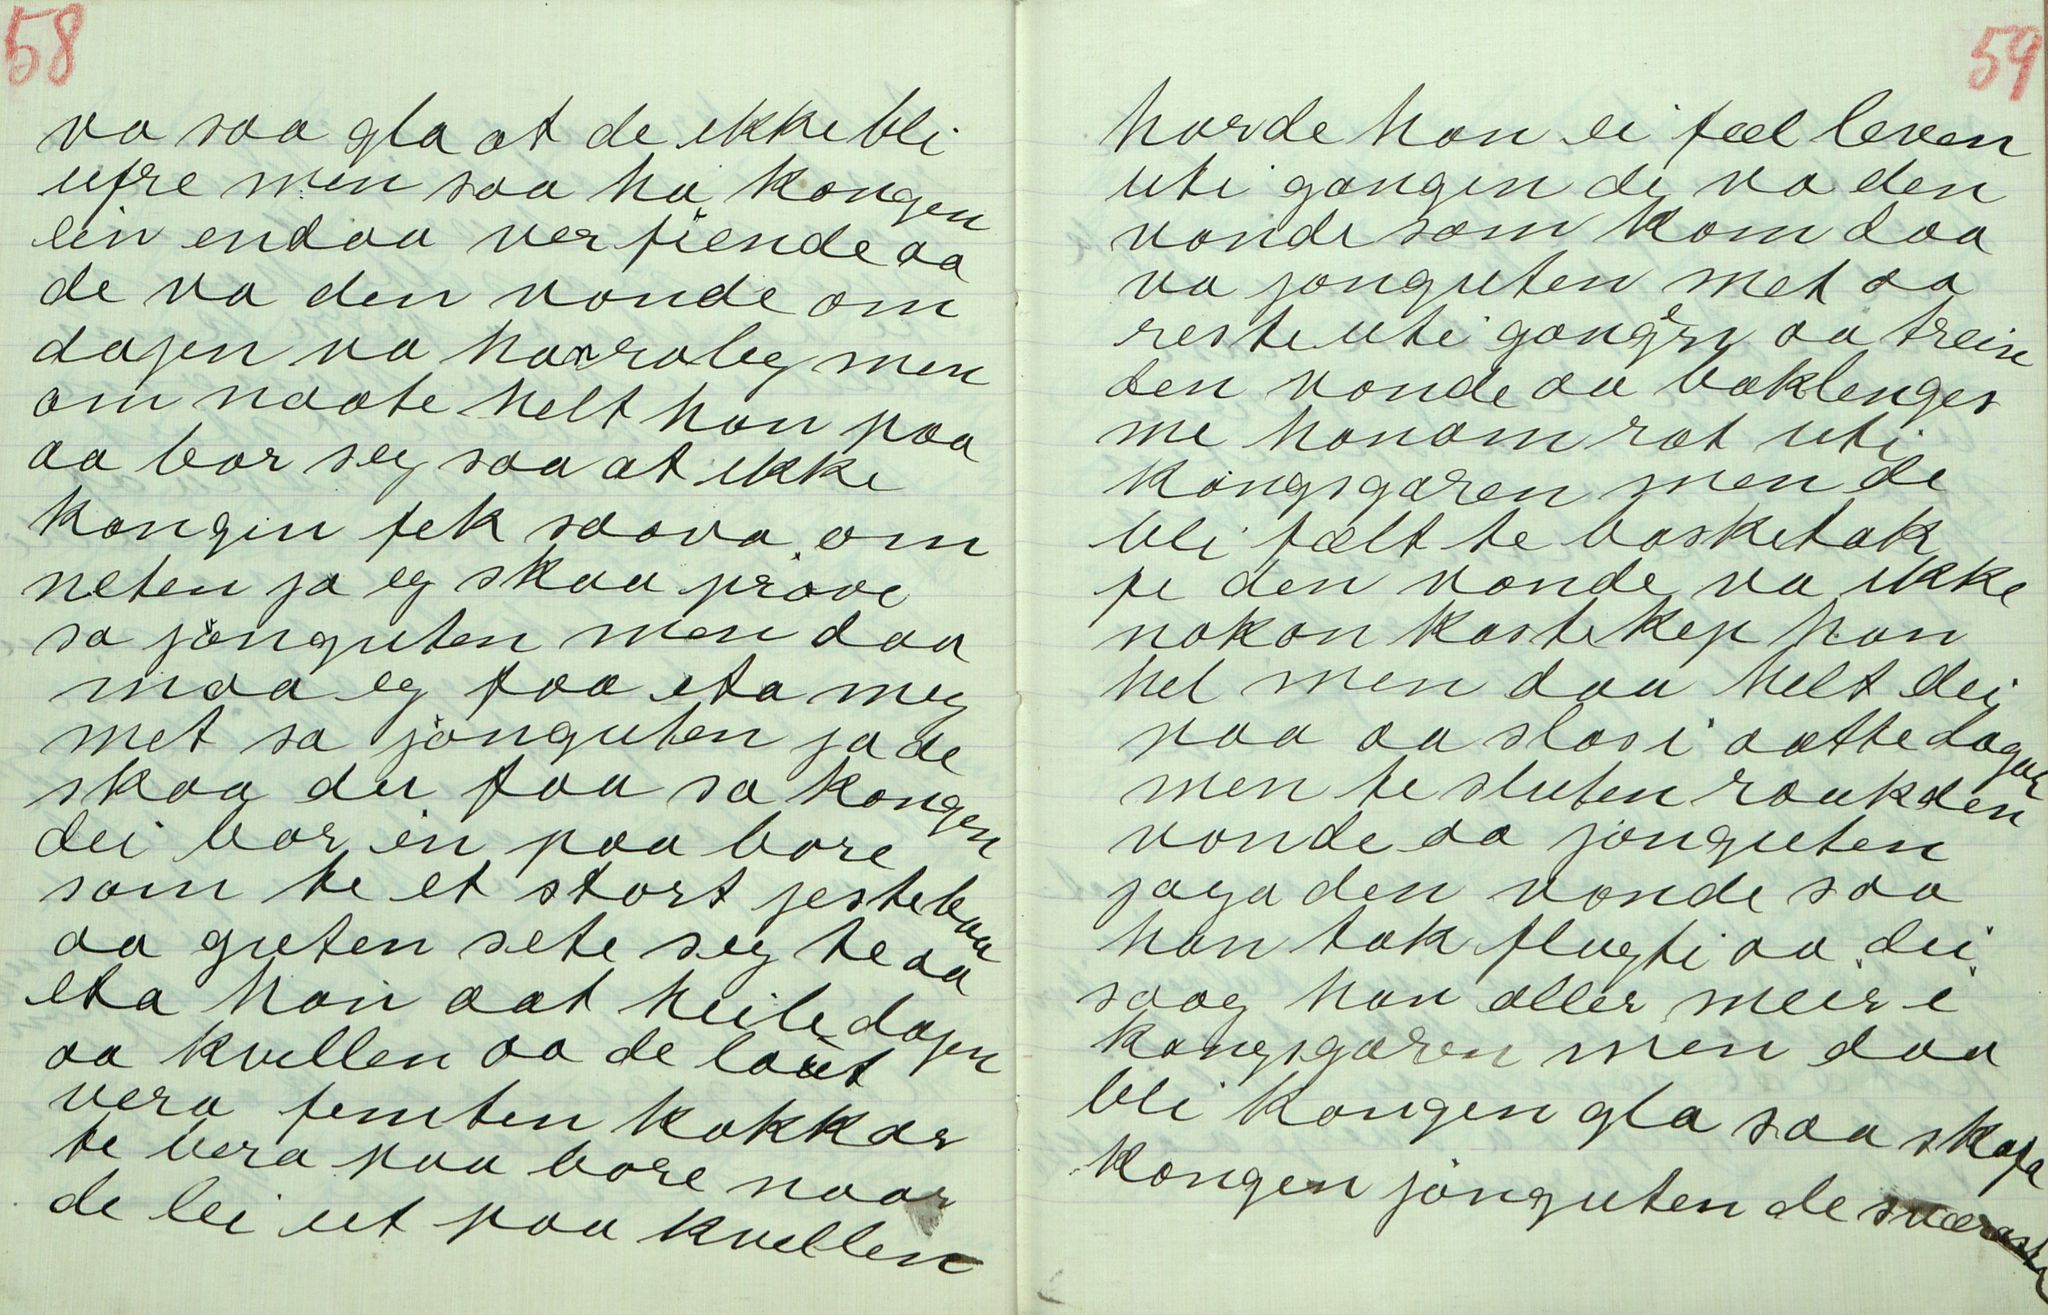 58
va saa gla at de ikke bli
ufre men saa ha kongen
ein endaa ver fiende aa
de va den vonde om
dagen va han roleg men
om naate helt han paa
aa bar seg saa at ikke
kongin fek saava om
neten ja eg skaa prøve
sa jønguten men daa
maa eg faa eta meg
met sa jønguten ja de
skaa du faa sa kongen
dei bar in paa bore
som te et stort jestebaa
aa guten sete seg te aa
eta han aat heile dagen
aa kvellen aa de laut
vera femten kokkar
te bera paa bore naar
de lei ut paa kvellen
59
horde han ei fæl leven
uti gangin de va den
vonde som kom daa
va jonguten met aa
reste uti gangen aa treiv
den vonde aa baklenges
me honom rat uti
kongsgaren men de
bli fælt te basketak
fe den vonde va ikke
nokon kastekep han
hel men daa helt dei
paa aa slas i aatte dagar
men te sluten rauk den
vonde aa jonguten
jaga den vonde saa
han tok flugti aa dei
saag han aller meir i
kongsgaren men daa
bli kongen gla saa skafa
kongen jønguten de sværaste